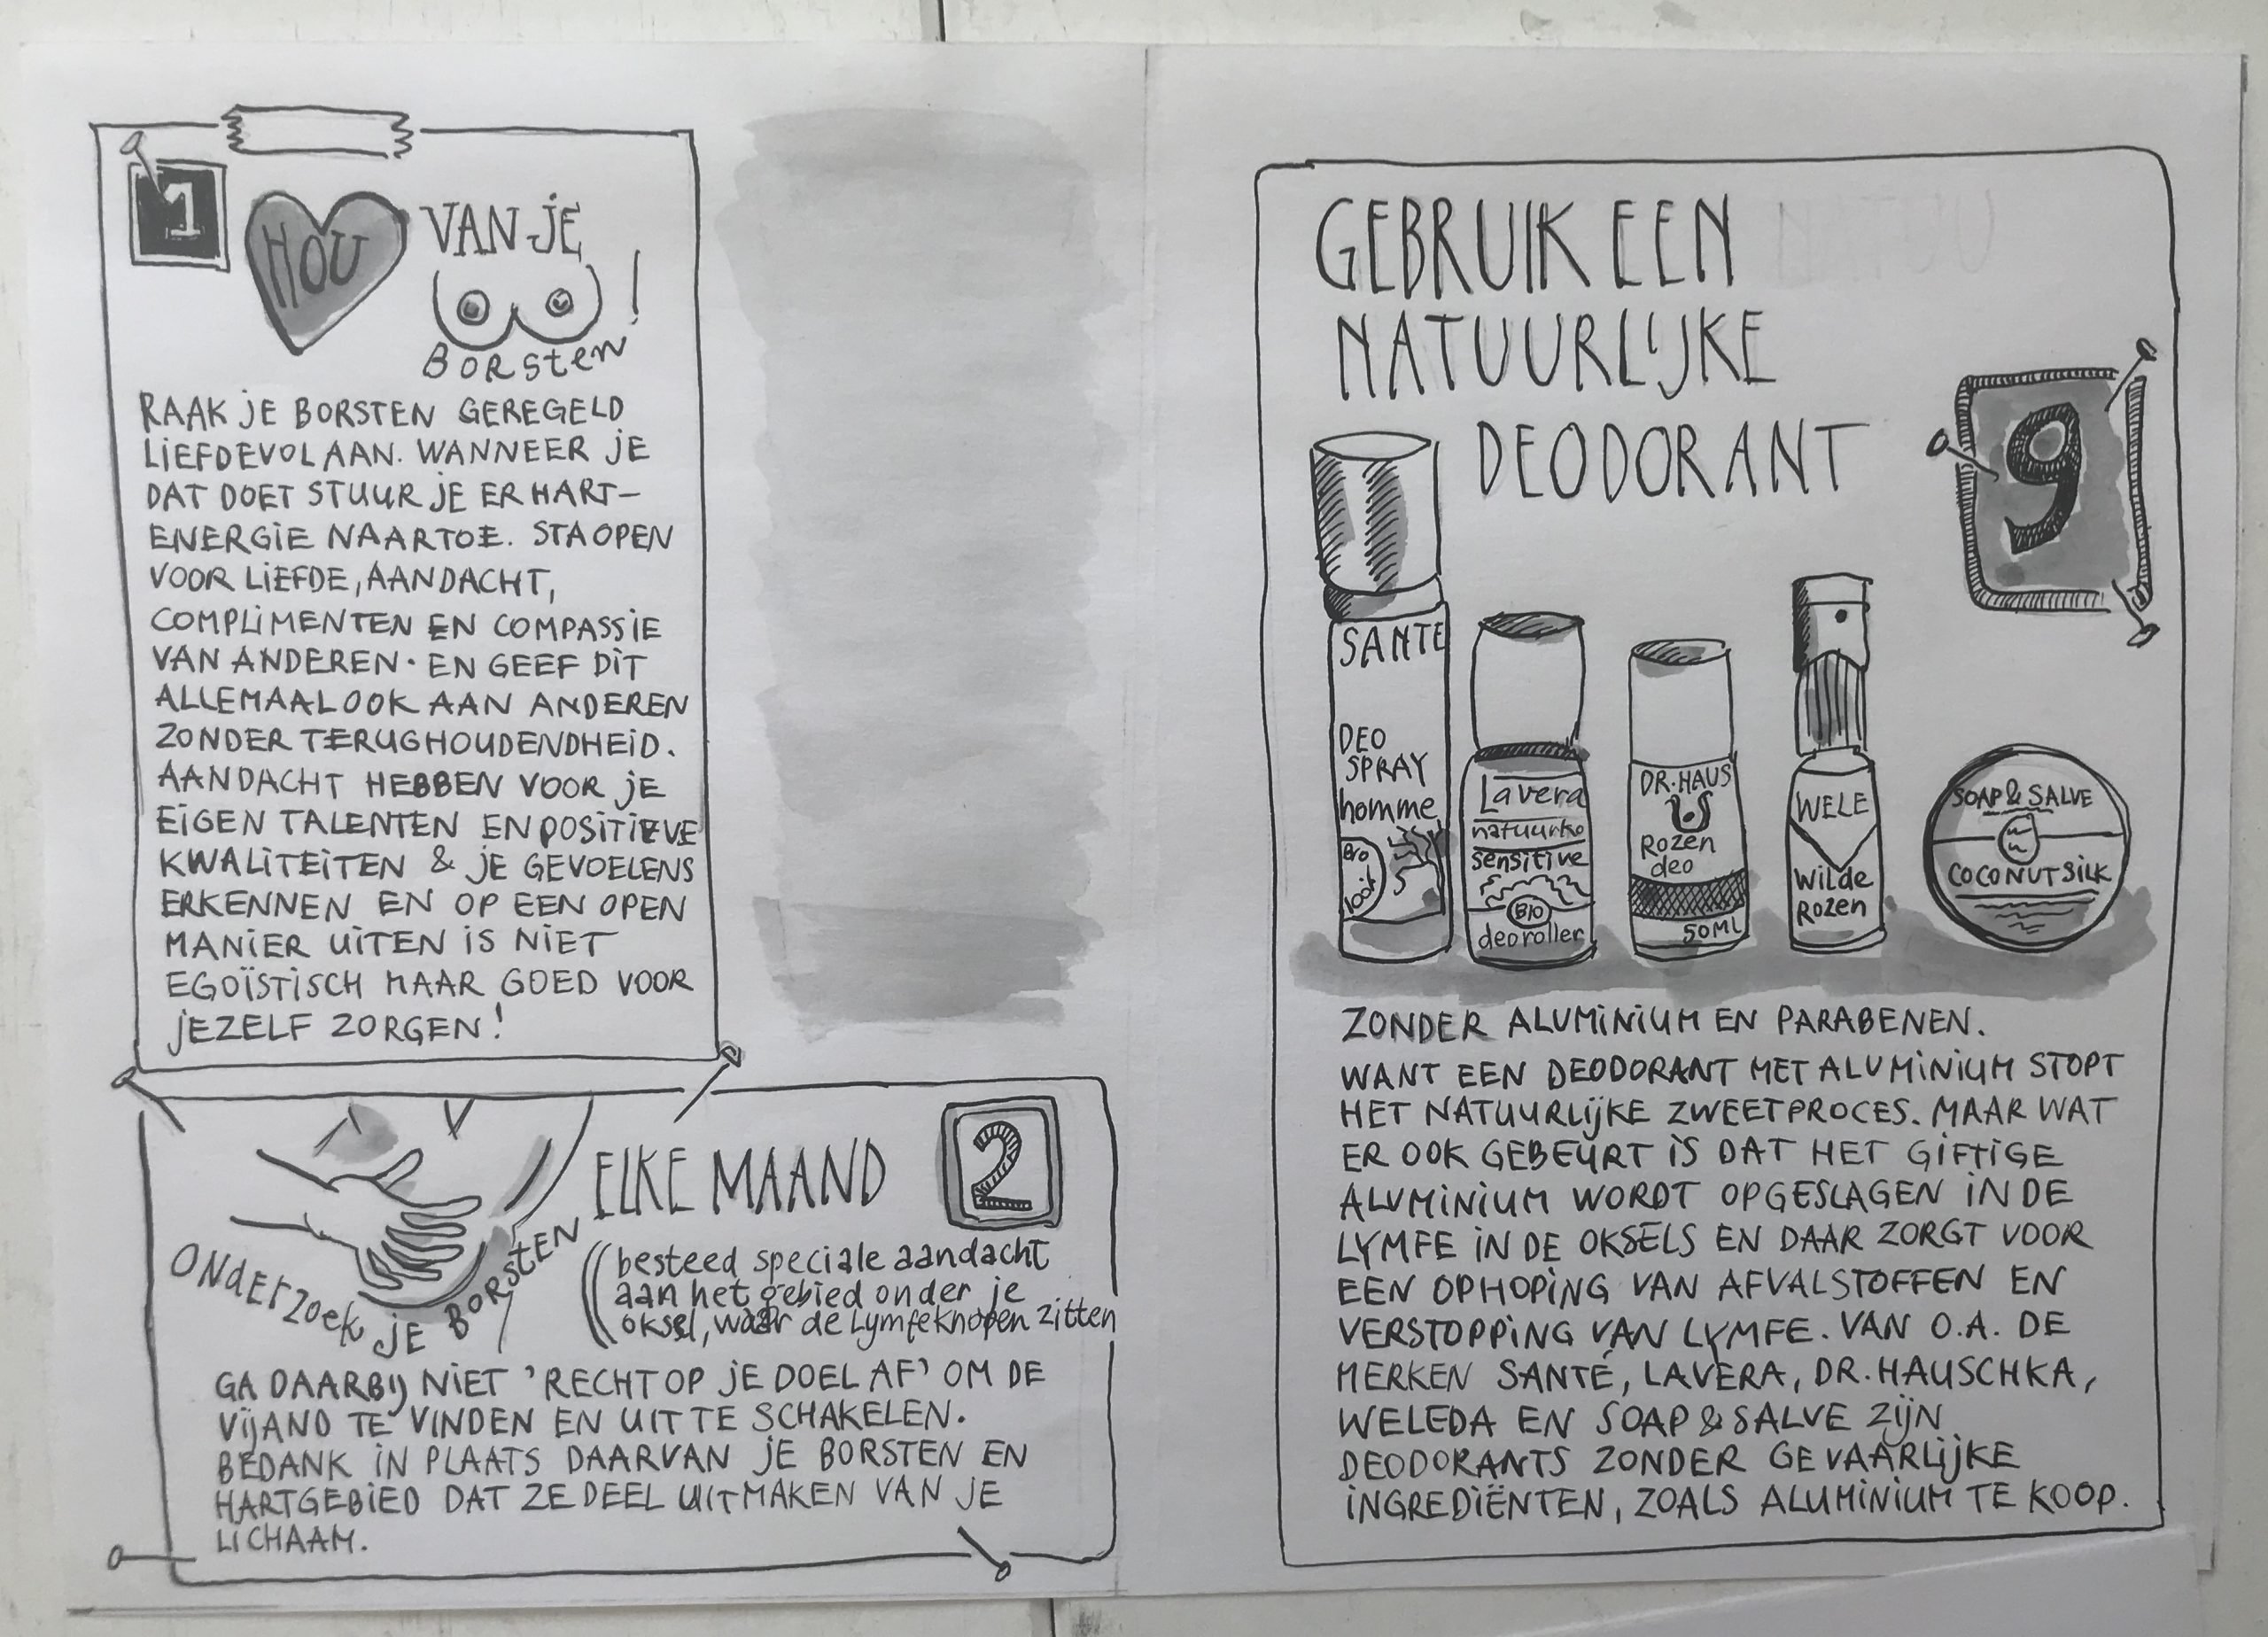 1
HOU VAN JE
BORSTEN!
RAAK JE BORSTEN GEREGELD
LIEFDEVOL AAN. WANNEER JE
DAT DOET STUUR JE ER HART-
ENERGIE NAARTOE. STA OPEN
VOOR LIEFDE, AANDACHT,
COMPLIMENTEN EN COMPASSIE
VAN ANDEREN. EN GEEF DIT
ALLEMAAL OOK AAN ANDEREN
ZONDER TERUGHOUDENDHEID.
AANDACHT HEBBEN VOOR JE
EIGEN TALENTEN EN POSITIEVE
KWALITEITEN & JE GEVOELENS
ERKENNEN EN OP EEN OPEN
MANIER UITEN IS NIET
EGOÏSTISCH MAAR GOED VOOR
JEZELF ZORGEN!
2
ELKE MAAND
ONDERZOEK JE BORSTEN
besteed speciale aandacht
aan het gebied onder je
oksel, waar de lymfeknopen zitten
GA DAARBIJ NIET 'RECHT OP JE DOEL AF' OM DE
VIJAND TE VINDEN EN UIT TE SCHAKELEN.
BEDANK IN PLAATS DAARVAN JE BORSTEN EN
HARTGEBIED DAT ZE DEEL UITMAKEN VAN JE
LICHAAM.
GEBRUIK EEN
NATUURLIJKE
DEODORANT
9
SANTE
DEO
SPRAY
homme
Lavera
natuurko
sensitive
BIO
deoroller
DR. HAUS
Rozen
deo
50ML
WELE
Wilde
Rozen
SOAP & SALVE
COCONUT SILK
ZONDER ALUMINIUM EN PARABENEN.
WANT EEN DEODORANT MET ALUMINIUM STOPT
HET NATUURLIJKE ZWEETPROCES. MAAR WAT
ER OOK GEBEURT IS DAT HET GIFTIGE
ALUMINIUM WORDT OPGESLAGEN IN DE
LYMFE IN DE OKSELS EN DAAR ZORGT VOOR
EEN OPHOPING VAN AFVALSTOFFEN EN
VERSTOPPING VAN LYMFE. VAN O.A. DE
MERKEN SANTÉ, LAVERA, DR. HAUSCHKA,
WELEDA EN SOAP & SALVE ZIJN
DEODORANTS ZONDER GEVAARLIJKE
INGREDIËNTEN, ZOALS ALUMINIUM TE KOOP.